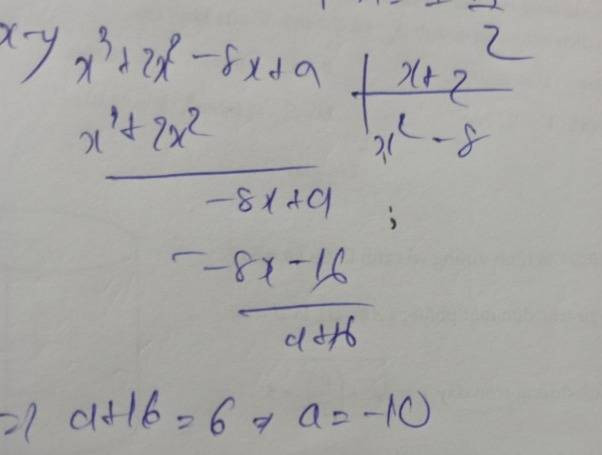 x-y
x³+2x²-8x+a | x+2
x³+2x² | x²-8
-8x+a ;
- -8x-16
a+16
=> a+16=6 => a=-10